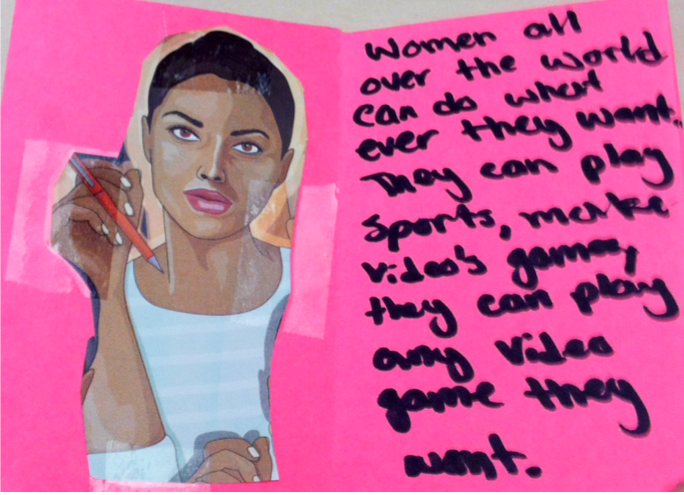 Women all
over the world
can do what
ever they want.
They can play
sports, make
video's games,
they can play
any video
game they
want.